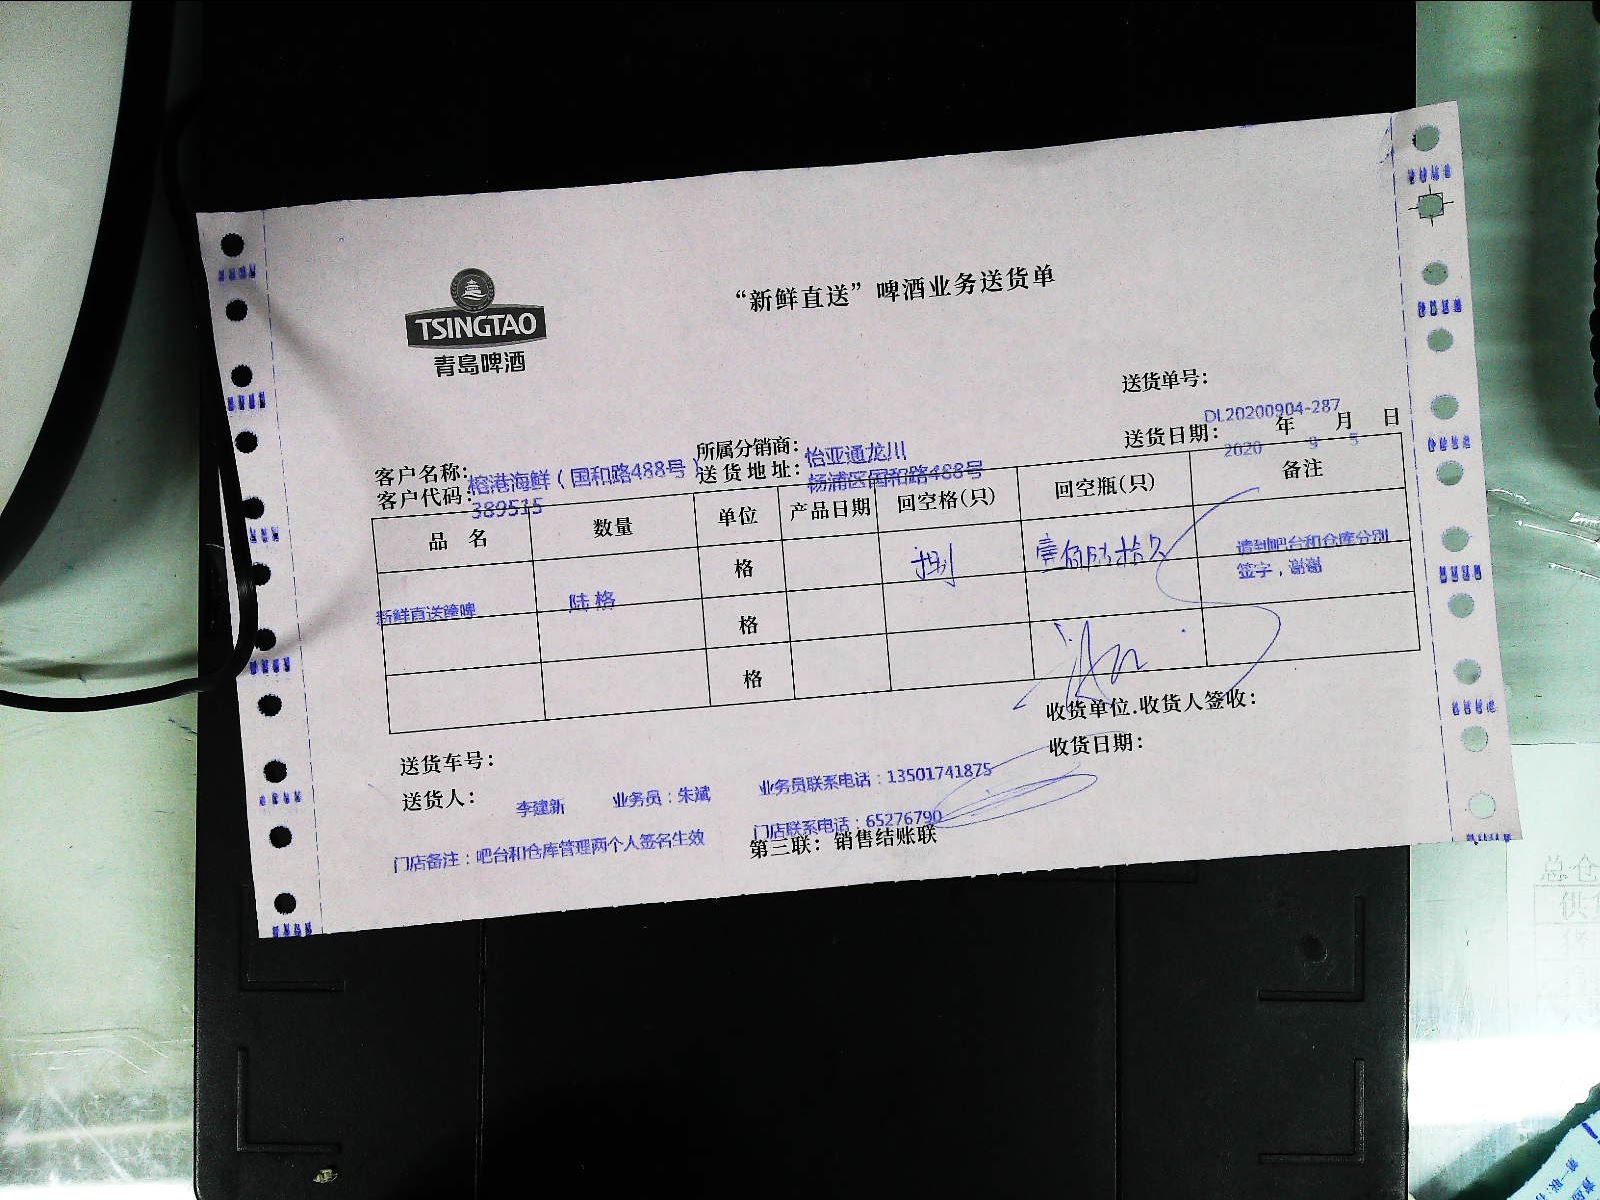 TSINGTAO
青岛啤酒
“新鲜直送”啤酒业务送货单
送货单号：
DL20200904-287
送货日期： 2020 年 9 月 5 日
客户名称：榕港海鲜（国和路488号）
所属分销商：怡亚通龙川
客户代码：389515
送货地址：杨浦区国和路488号
品 名 数量 单位 产品日期 回空格(只) 回空瓶(只) 备注
新鲜直送 陆格 格 请到吧台和仓库分别
签字，谢谢
格
格
收货单位.收货人签收：
收货日期：
送货车号：
送货人： 李建新 业务员：朱斌 业务员联系电话：13501741875
门店联系电话：65276790
门店备注：吧台和仓库管理两个人签名生效
第三联：销售结账联